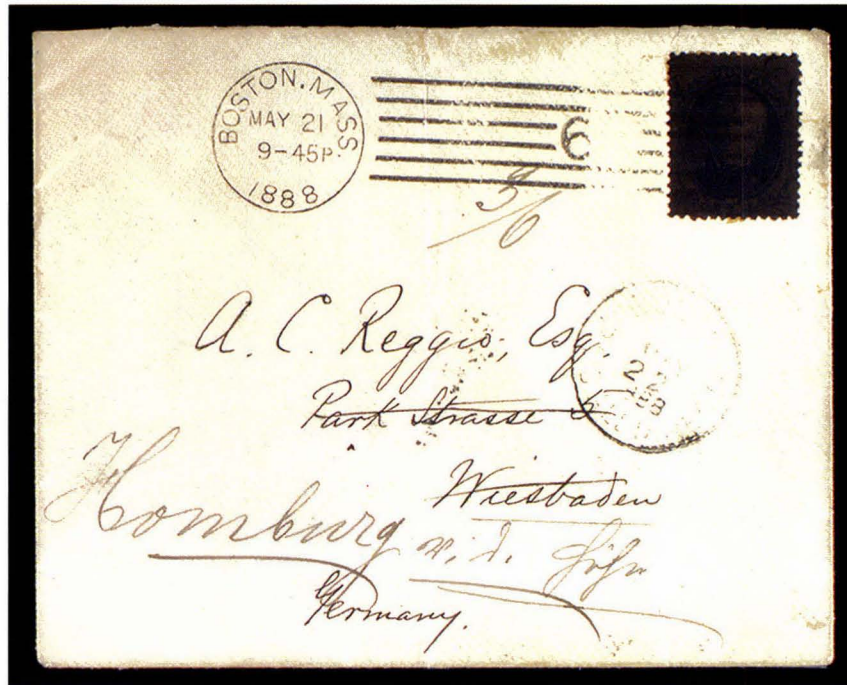 BOSTON, MASS
MAY 21
9-45P.
1888
6
3/6
A. C. Reggio, Esq.
Park Strasse 5
Wiesbaden
Homburg v. d. Höhe
Germany.
22
88